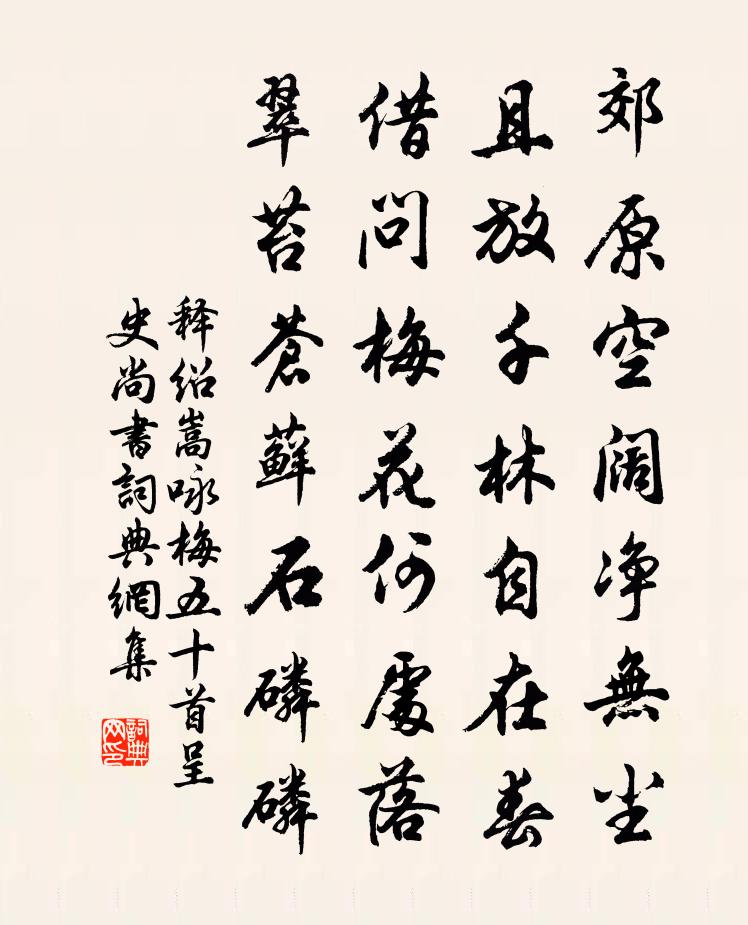 郊原空阔净無尘
且放千林自在春
借問梅花何處落
翠苔蒼蘚石磷磷
释绍嵩咏梅五十首呈
史尚書詞典網集
詞典网印